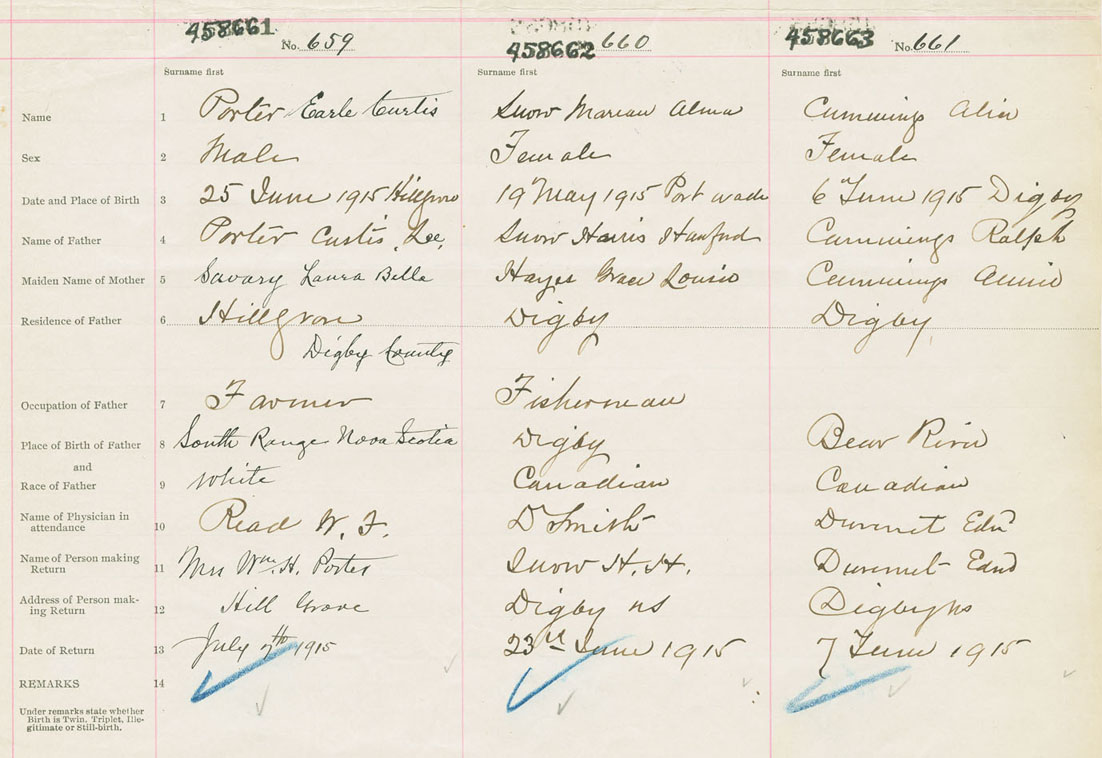 458661 No. 659 458662 660 458663 No. 661
Surname first Surname first Surname first
Name 1 Porter Earle Curtis Snow Marian Alma Cummings
Sex 2 Male Female Female
Date and Place of Birth 3 25 June 1915 Hillgrove 19 May 1915 Port wade 6 June 1915 Digby
Name of Father 4 Porter Curtis Lee Snow Harris Hanford Cummings Ralph
Maiden Name of Mother 5 Savary Laura Belle Hayes Grace Louise Cummings Annie
Residence of Father 6 Hillgrove Digby Digby
Digby County
Occupation of Father 7 Farmer Fisherman
Place of Birth of Father 8 South Range Nova Scotia Digby Bear River
and
Race of Father 9 White Canadian Canadian
Name of Physician in
attendance 10 Read W. F. Dr Smith
Name of Person making
Return 11 Mrs Wm. H. Porter Snow H. H.
Address of Person mak-
ing Return 12 Hill Grove Digby ns Digby ns
Date of Return 13 July 7th 1915 23rd June 1915 7 June 1915
REMARKS 14
Under remarks state whether
Birth is Twin, Triplet, Ille-
gitimate or Still-birth.